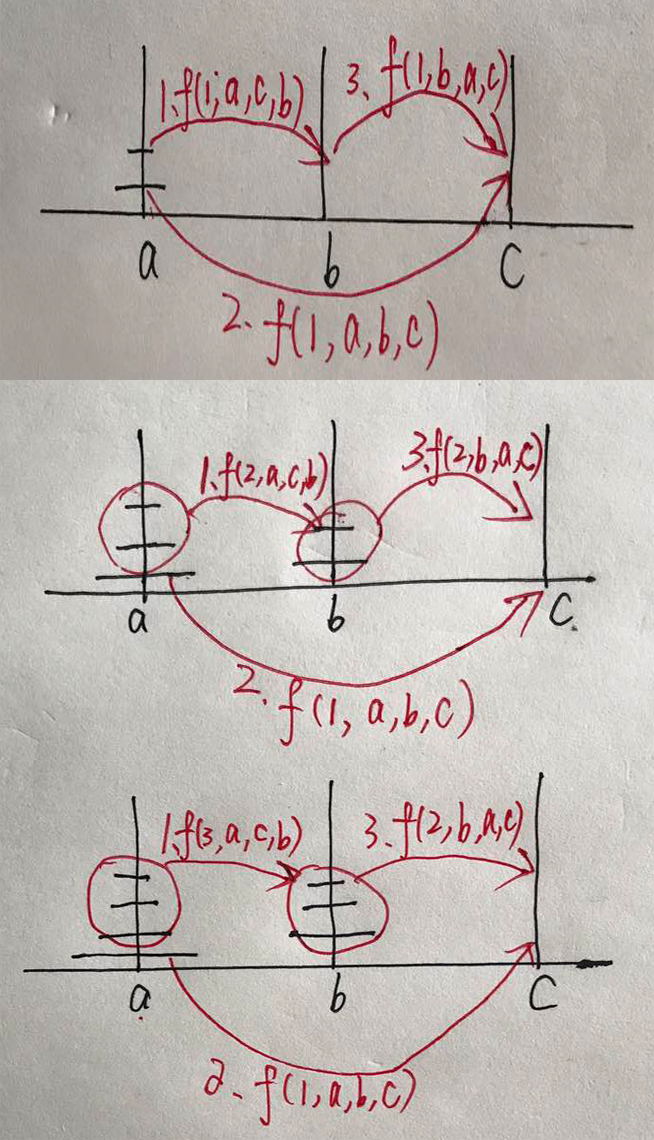 1. f(1, a, c, b)
3. f(1, b, a, c)
a
b
c
2. f(1, a, b, c)
1. f(2, a, c, b)
3. f(2, b, a, c)
a
b
C.
2. f(1, a, b, c)
1. f(3, a, c, b)
3. f(2, b, a, c)
a
b
C
2. f(1, a, b, c)